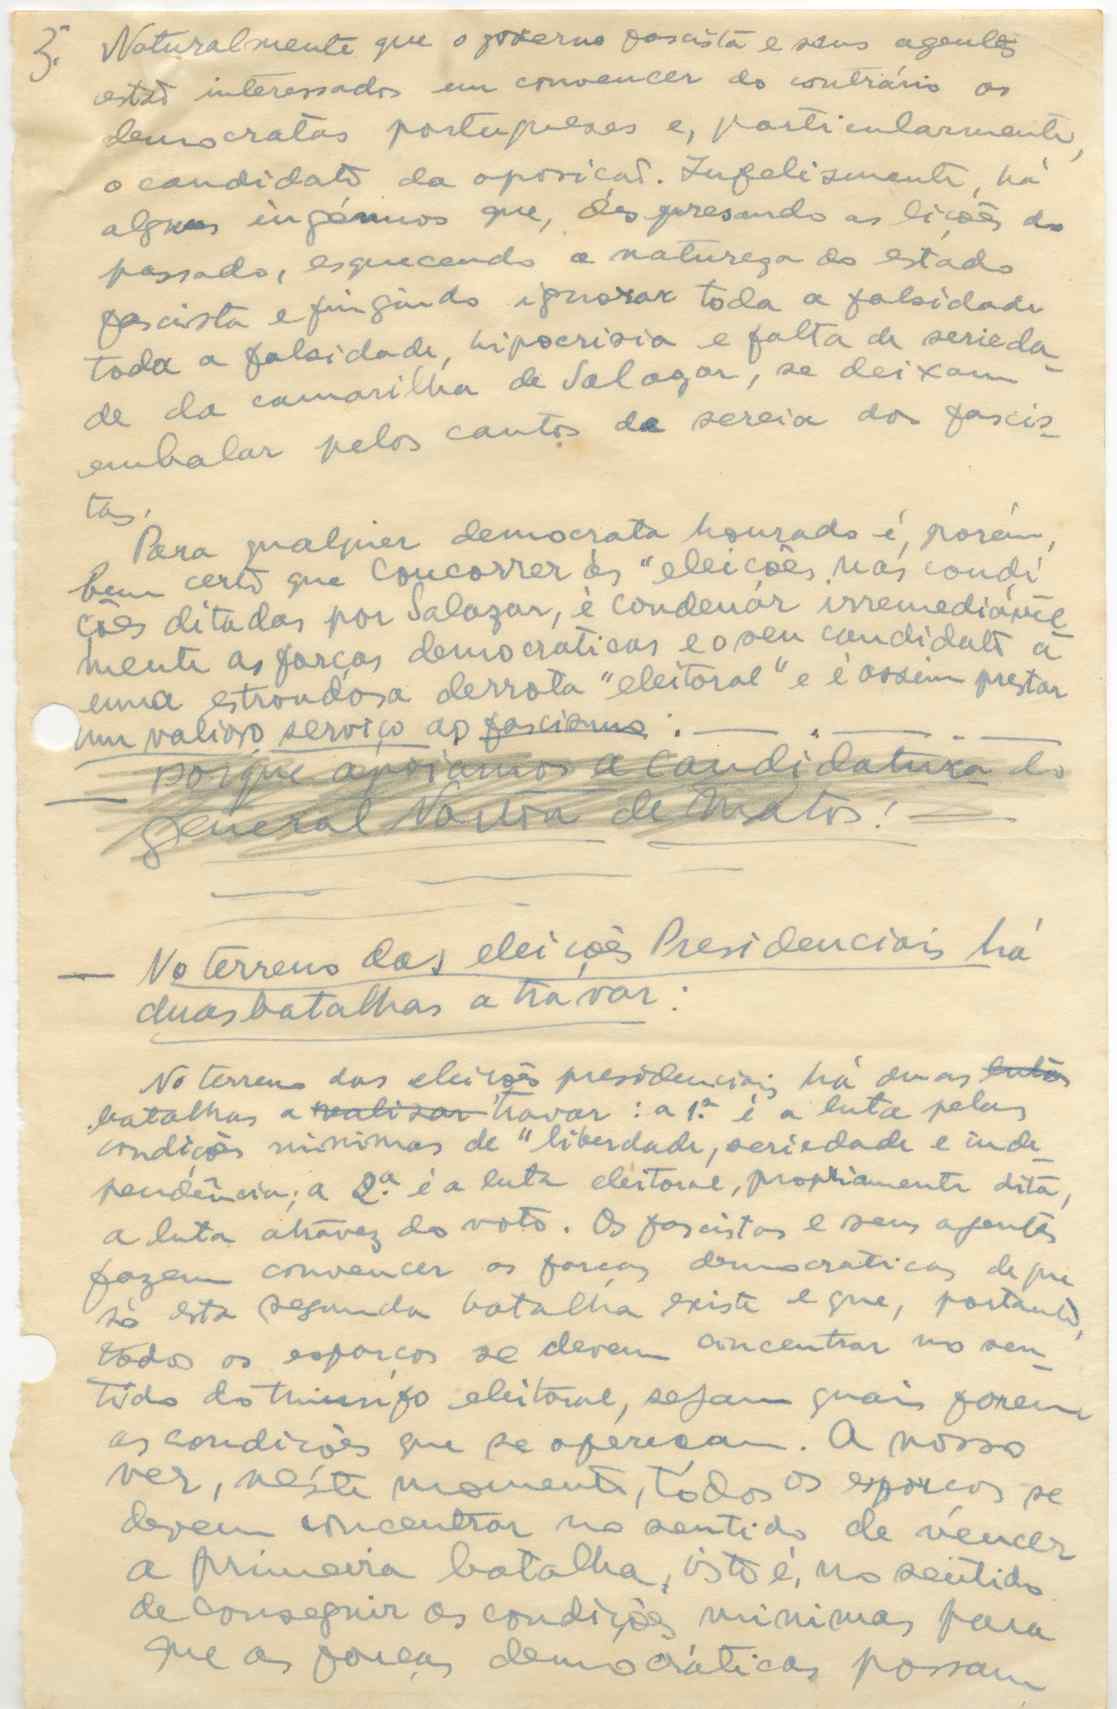 3.ª Naturalmente que o governo fascista e seus agentes
estão interessados em convencer do contrário os
democratas portugueses e, particularmente,
o candidato da oposicaõ. Infelismente, há
alguns ingénuos que, despresando as liçoẽs do
passado, esquecendo a natureza do estado
fascista e fingindo ignorar toda a falsidade
toda a falsidade, hipocrisia e falta de serieda-
de da camarilha de Salazar, se deixam
embalar pelos cantos da sereia dos fascis-
tas.
Para qualquer democrata honrado é, porém,
bem certo que concorrer ás "eleicoẽs nas condi
ções ditadas por Salazar, é condenár irremediávél
mente as forças democraticas e o seu candidato a
uma estrondosa derrota "eleitoral" e é assim prestar
um valioso serviço ao fascismo.
— porque apoiamos a candidatura do
general Norton de Matos! —
— No terreno das eleicoẽs Presidenciais há
duas batalhas a travar:
No terreno das eleiçoẽs presidenciais há duas lutas
batalhas a realisar travar: a 1.ª é a luta pelas
condições minimas de "liberdade, seriedade e inde-
pendência; a 2.ª é a luta eleitoral, propriamente dita,
a luta atravez do voto. Os fascistas e seus agentes
fazem convencer as forças democraticas de que
só esta segunda batalha existe e que, portanto,
todos os esforcos se devem concentrar no sen-
tido do triunfo eleitoral, sejam quais forem
as condiçoẽs que se ofereçam. A nosso
ver, néste momento, todos os esforcos se
devem concentrar no sentido de vencer
a primeira batalha, isto é, no sentido
de conseguir as condiçoẽs minimas para
que as forças democráticas possam